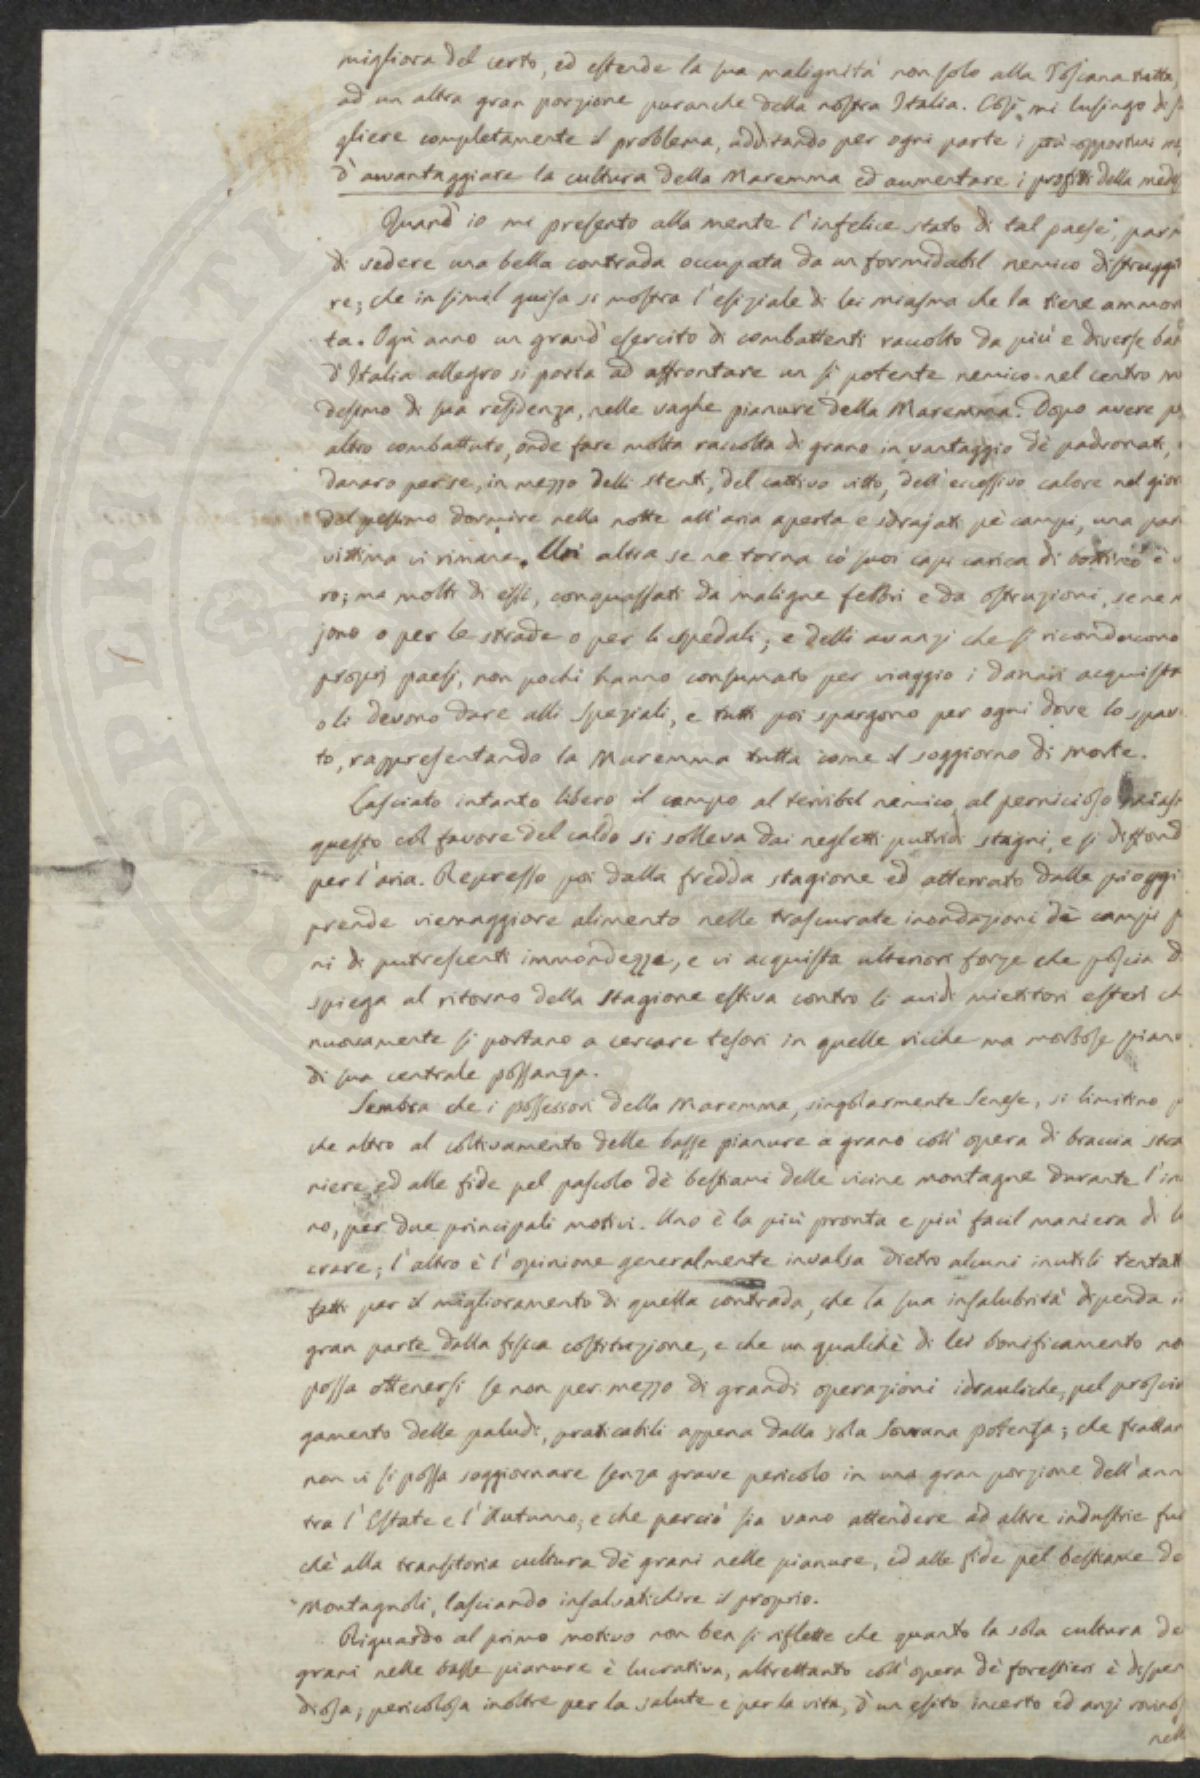 migliora del certo, ed estende la sua malignità non solo alla Toscana tutta,
ad un altra gran porzione puranche della nostra Italia. Così mi lusingo di
gliere completamente il problema, additando per ogni parte i più opportuni
d'avvantaggiare la cultura della Maremma ed aumentare i profitti della med
Quand' io mi presento alla mente l'infelice stato di tal paese, par
di vedere una bella contrada occupata da un formidabil nemico distruggi
re; che in simil guisa si mostra l'esiziale di lei miasma che la tiene ammor
ta. Ogni anno un grand' esercito di combattenti raccolto da più e diverse ba
d'Italia allegro si porta ad affrontare un sì potente nemico nel centro
desimo di sua residenza, nelle vaghe pianure della Maremma. Dopo avere
altro combattuto, onde fare molta raccolta di grano in vantaggio dè padronati,
danaro per se, in mezzo delli stenti, del cattivo vitto, dell'eccessivo calore nel gior
dal pessimo dormire nella notte all'aria aperta e sdrajati pè campi, una par
vittima vi rimane. Un altra se ne torna cò suoi capi carica di bottino è
ro; ma molti di essi, conquassati da maligne febbri e da ostruzioni, se ne
jono o per le strade o per li spedali; e delli avanzi che si riconducono
propri paesi, non pochi hanno consumato per viaggio i danari acquist
o li devono dare alli Speziali, e tutti poi spargono per ogni dove lo spav
to, rappresentando la Maremma tutta come il soggiorno di morte.
Lasciato intanto libero il campo al terribil nemico, al pernicioso mias
questo col favore del caldo si solleva dai negletti putridi stagni, e si diffond
per l'aria. Represso poi dalla fredda stagione ed atterrato dalle pioggi
prende viemaggiore alimento nelle trascurate inondazioni dè campi p
ni di putrescenti immondezze, e vi acquista ulteriori forze che poscia d
spiega al ritorno della stagione estiva contro li avidi mietitori esteri ch
nuovamente si portano a cercare tesori in quelle ricche ma morbose pianu
di sua centrale possanza.
Sembra che i possessori della Maremma, singolarmente Senese, si limitino p
che altro al coltivamento delle basse pianure a grano coll'opera di braccia stra
niere ed alle fide pel pascolo dè bestiami delle vicine montagne durante l'in
no, per due principali motivi. Uno è la più pronta e più facil maniera di lu
crare; l'altro è l'opinione generalmente invalsa dietro alcuni inutili tentat
fatti per il miglioramento di quella contrada, che la sua insalubrità dipenda i
gran parte dalla fisica costituzione, e che un qualchè di lei bonificamento no
possa ottenersi se non per mezzo di grandi operazioni idrauliche, pel prosciu
gamento delle paludi, praticabili appena dalla sola Sovrana potenza; che frattan
non vi si possa soggiornare senza grave pericolo in una gran porzione dell'ann
tra l'Estate e l'Autunno; e che perciò sia vano attendere ad altre industrie fuo
chè alla transitoria cultura dè grani nelle pianure, ed alle fide pel bestiame de
Montagnoli, lasciando insalvatichire il proprio.
Riguardo al primo motivo non ben si riflette che quanto la sola cultura de
grani nelle basse pianure è lucrativa, altrettanto coll'opera dè forestieri è dispen
diosa; pericolosa inoltre per la salute e per la vita, d'un esito incerto ed anzi rovinos
nell